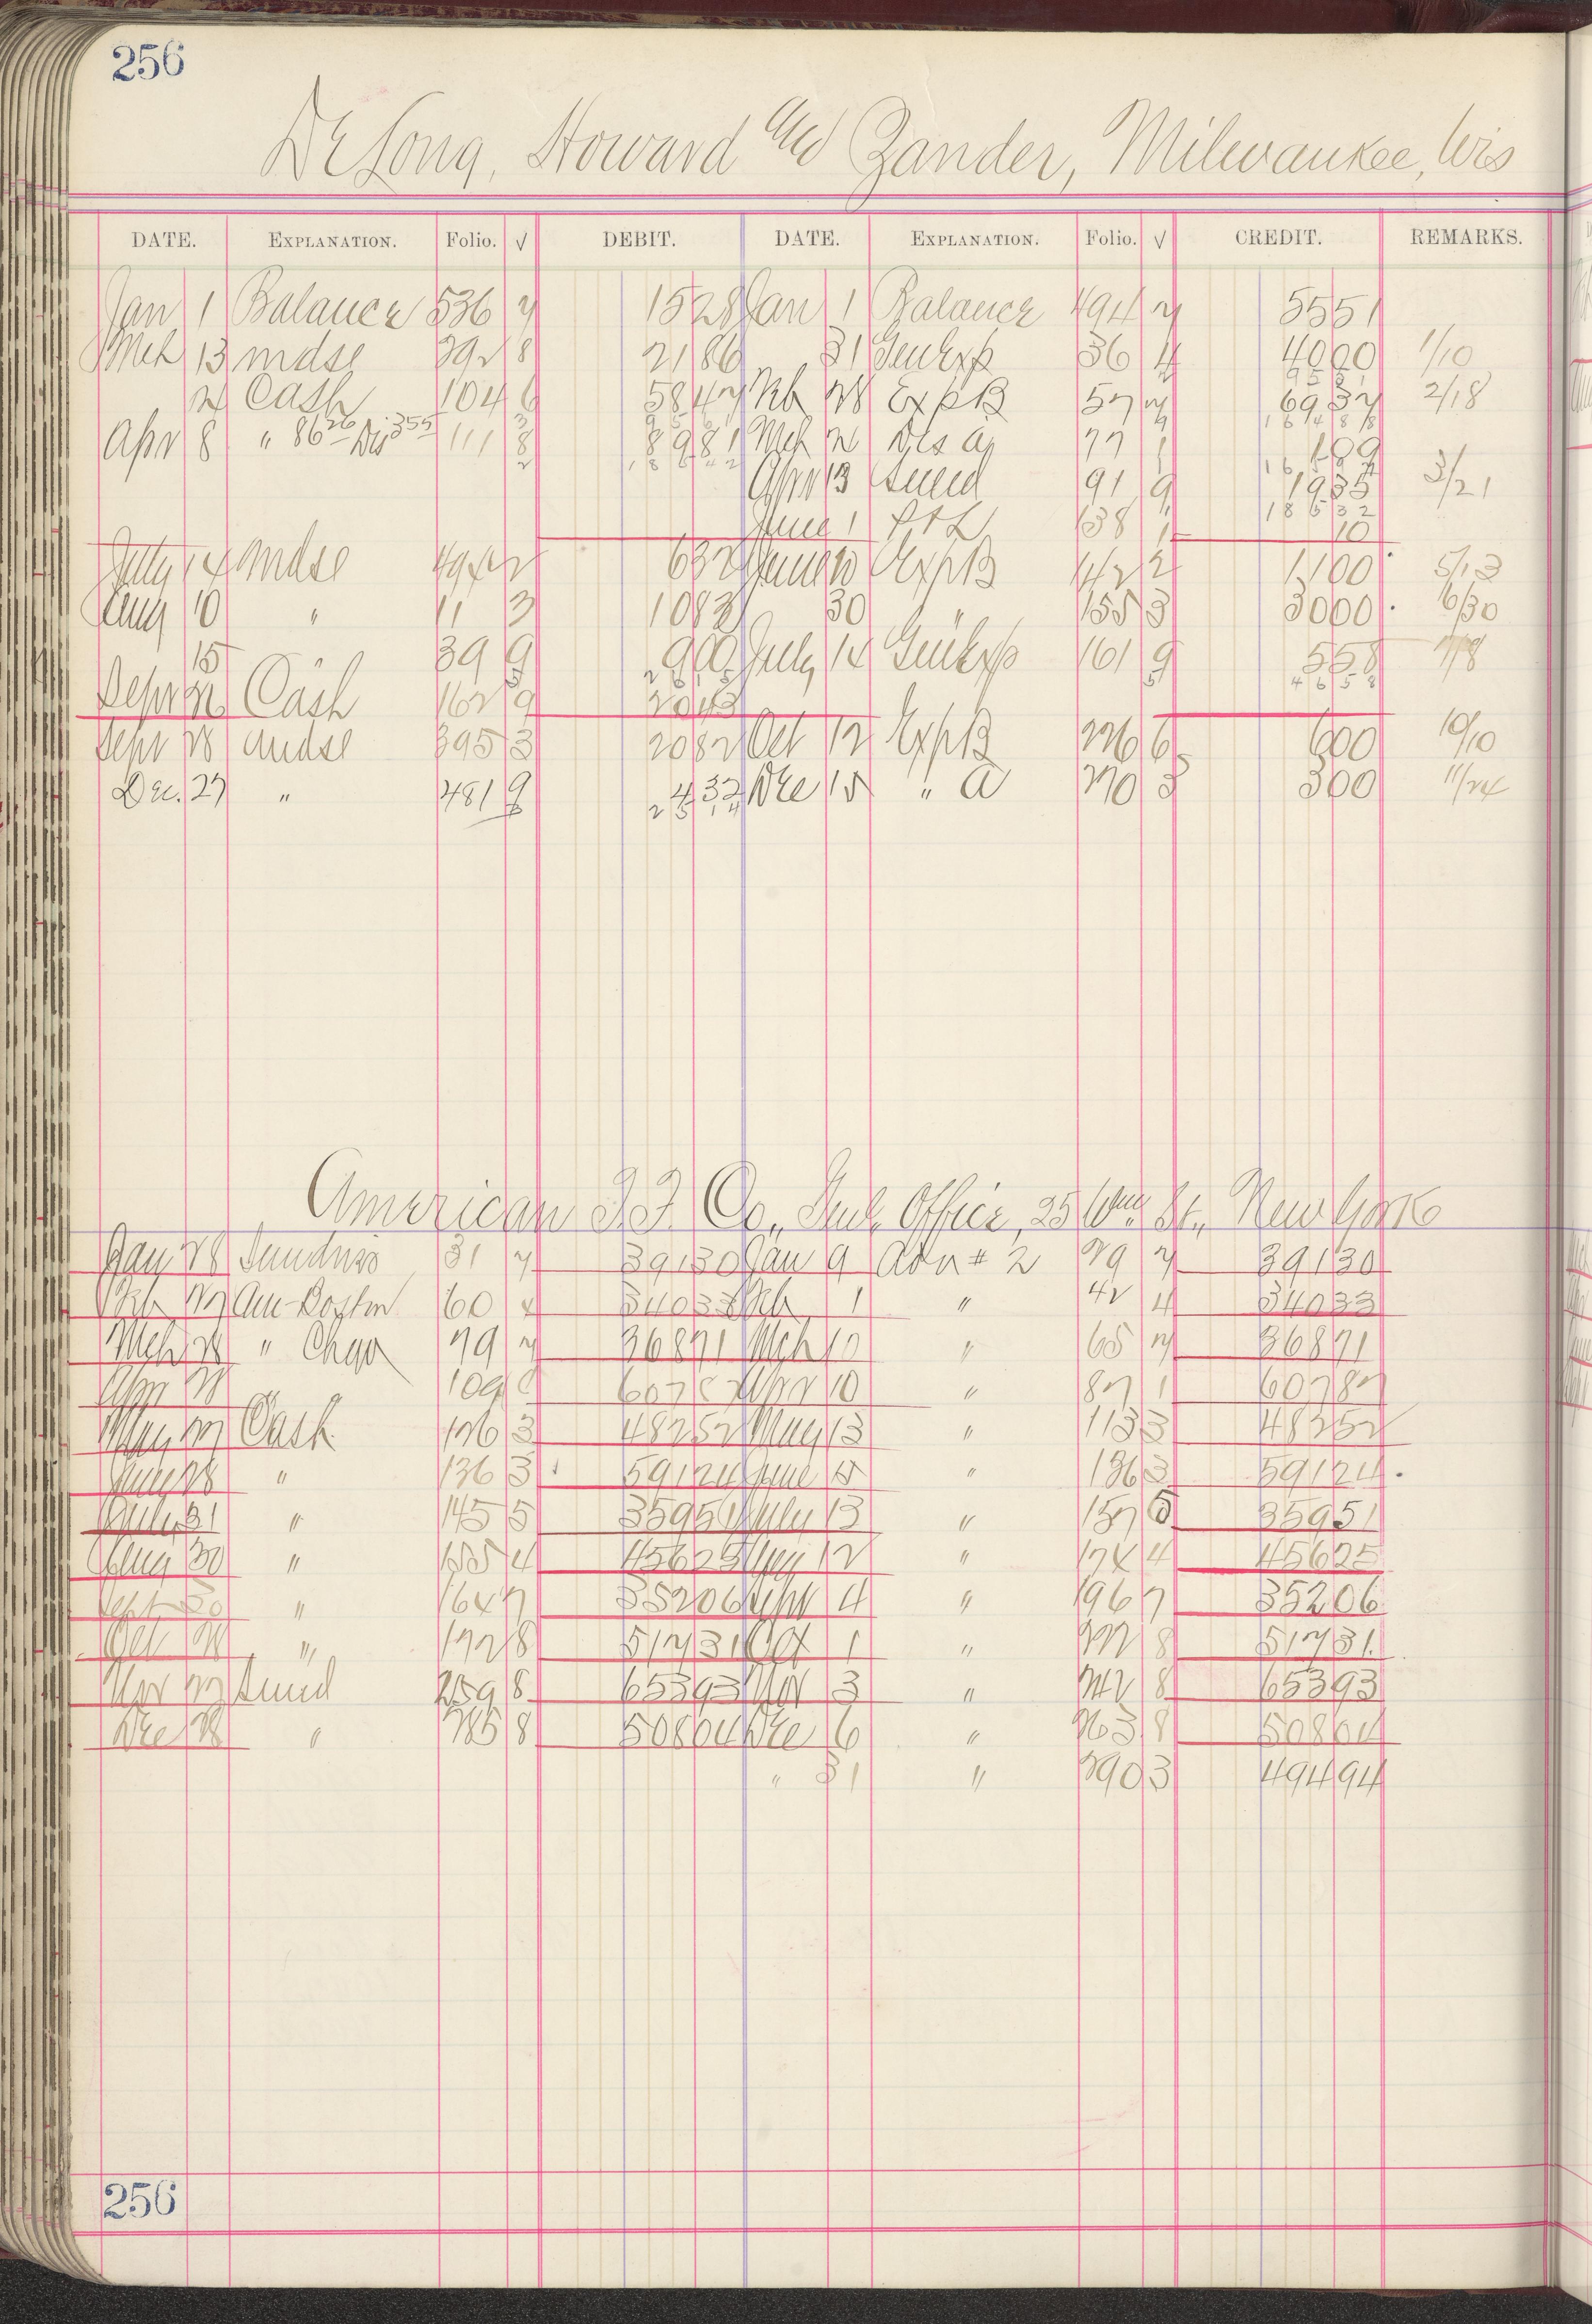 256
DeLong, Howard a/c Zander, Milwaukee, Wis
DATE. EXPLANATION. Folio. √ DEBIT. DATE. EXPLANATION. Folio. √ CREDIT. REMARKS.
Jan 1 Balance 536 7 1528 Jan 1 Balance 494 7 5551
Mch 13 mdse 392 8 2186 31 GenExp 36 4 4000 1/10
Cash 104 6 5847 Feb 28 Exp B 57 7 6937 2/18
Apr 8 " 86 26 Dis 355 111 8 8981 Mch Dis 77 1 199
Apr 13 Sund 91 9 1935 3/21
June 1 P & L 138 1 10
July 14 Mdse 494 2 632 June Exp B 142 2 1100 5/13
Aug 10 " 11 3 1083 30 " 155 3 3000 6/30
15 39 9 900 July 14 GenExp 161 9 558 7/8
Sept 26 Cash 162 9 2043
Sept 28 Mdse 395 3 2082 Oct 12 Exp B 226 6 600 10/10
Dec. 27 " 481 9 432 Dec 15 " A 270 3 300 11/24
American Co., Office, 25 St., New York
Jan 28 Sundries 31 7 39130 Jan 9 Adv # 2 29 7 39130
Feb 27 Am-Boston 60 4 34033 Feb 1 " 42 4 34033
Mch 28 " Chgo 79 7 36871 Mch 10 " 65 7 36871
Apr 28 109 60787 Apr 10 " 87 1 60787
May 27 Cash 126 3 48252 May 13 " 113 3 48252
June 28 " 136 3 59124 June 15 " 136 3 59124
July 31 " 145 5 35951 July 13 " 157 5 35951
Aug 30 " 155 4 45625 Aug 12 " 174 4 45625
Sept 30 " 164 7 35206 Sept 4 " 196 7 35206
Oct 28 " 172 8 51731 Oct 1 " 217 8 51731
Nov 27 Sund 259 8 65393 Nov 3 " 242 8 65393
Dec 28 " 285 8 50804 Dec 6 " 263 8 50804
" 31 " 290 3 49494
256